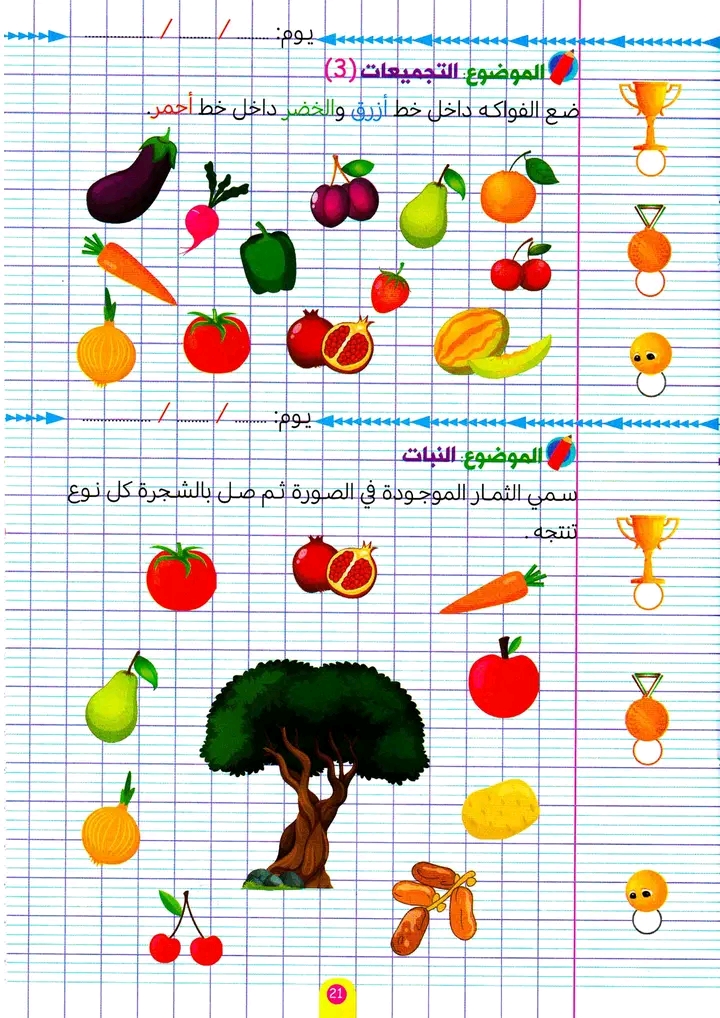 يوم: ........... / ........... / ......................
الموضوع: التجميعات (3)
ضع الفواكه داخل خط أزرق والخضر داخل خط أحمر.
يوم: ........... / ........... / ......................
الموضوع: النبات
سمي الثمار الموجودة في الصورة ثم صل بالشجرة كل نوع
تنتجه .
21